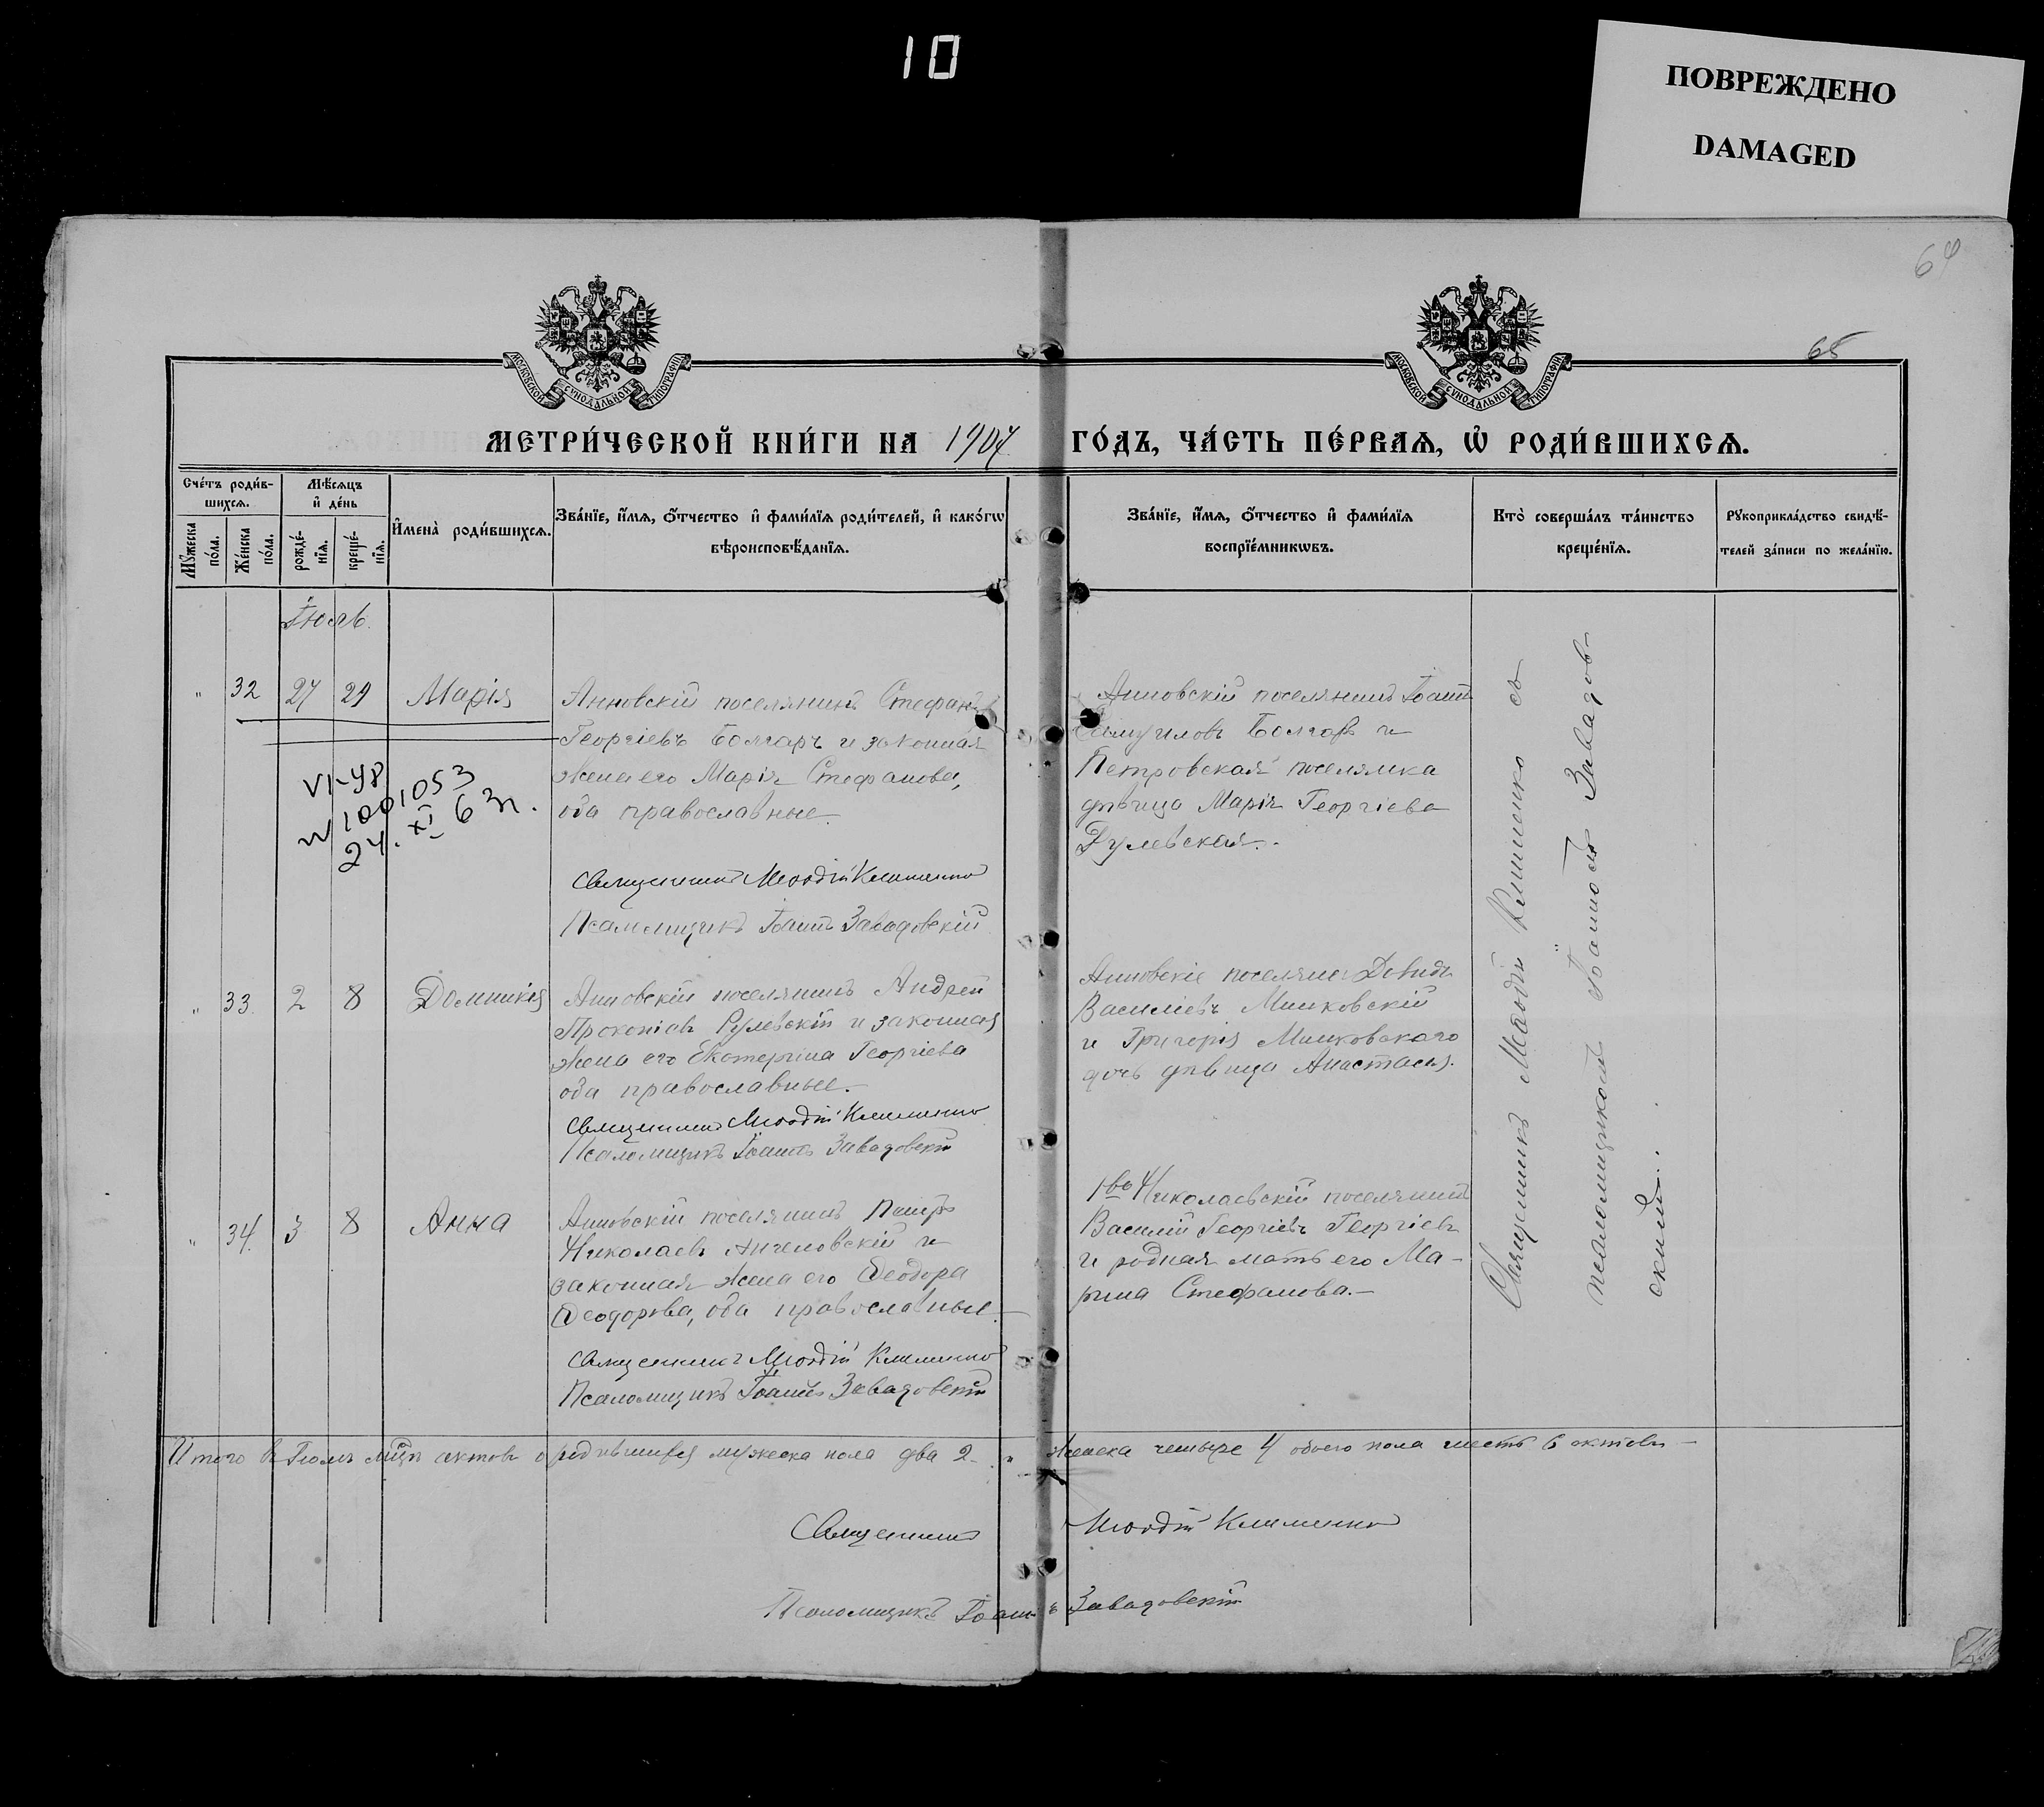 10
ПОВРЕЖДЕНО
DAMAGED
64
65
МОСКОВСКОЙ СѴНОДАЛЬНОЙ ТИПОГРАФІИ
МОСКОВСКОЙ СѴНОДАЛЬНОЙ ТИПОГРАФІИ
МЕТРИ́ЧЕСКОЙ КНИ́ГИ НА 1904 ГО́ДЪ, ЧА́СТЬ ПЕ́РВАЯ, Ѡ РОДИ́ВШИХСЯ.
Сче́тъ роди́в-
шихся.
Мѣ́сяцъ
и де́нь
Мꙋ́жеска
по́ла.
Же́нска
по́ла.
рожде́-
нїя.
креще́-
нїя.
И҆мена̀ роди́вшихся.
Зва́нїе, и҆́мя, ѻ҆́тчество и҆ фами́лїя роди́телей, и҆ како́гѡ
вѣроисповѣ́данїя.
Зва́нїе, и҆́мя, ѻ҆́тчество и҆ фами́лїя
воспрїе́мникѡвъ.
Кто̀ соверша́лъ та́инство
креще́нїя.
Рꙋкоприкла́дство свидѣ́-
телей за́писи по жела́нїю.
Іюль.
" 32 27 29 Марія
Анновскій поселянинъ Стефанъ
Георгіевъ Болгаръ и законная
жена его Марія Стефанова,
оба православные.
Священникъ Меѳодій Клименко
Псаломщикъ Іоаннъ Завадовскій
Анновскій поселянинъ Іоаннъ
Самуиловъ Болгаръ и
Петровская поселянка
дѣвица Марія Георгіева
Рулевская.
VI-УР
N 1001053
24. XI 63г.
" 33. 2 8 Домникія
Анновскій поселянинъ Андрей
Прокопіевъ Рулевскій и законная
жена его Екатерина Георгіева
оба православные.
Священникъ Меѳодій Клименко
Псаломщикъ Іоаннъ Завадовскій
Анновскіе поселяне Давидъ
Василіевъ Минковскій
и Григорія Минковского
дочь дѣвица Анастасія.
" 34. 3 8 Анна
Анновскій поселянинъ Петръ
Николаевъ Ангеловскій и
законная жена его Ѳеодора
Ѳеодорова, оба православные.
Священникъ Меѳодій Клименко
Псаломщикъ Іоаннъ Завадовскій
1во Николаевскій поселянинъ
Василій Георгіевъ Георгіевъ
и родная мать его Ма-
рина Стефанова.-
Священникъ Меѳодій Клименко съ
псаломщикомъ Іоанномъ Завадов-
скимъ.
Итого въ Іюлѣ мцѣ актовъ о родившихся мужеска пола два 2. " женска четыре 4 обоего пола шесть 6 актовъ -
Священникъ Меѳодій Клименко
Псаломщикъ Іоаннъ Завадовскій